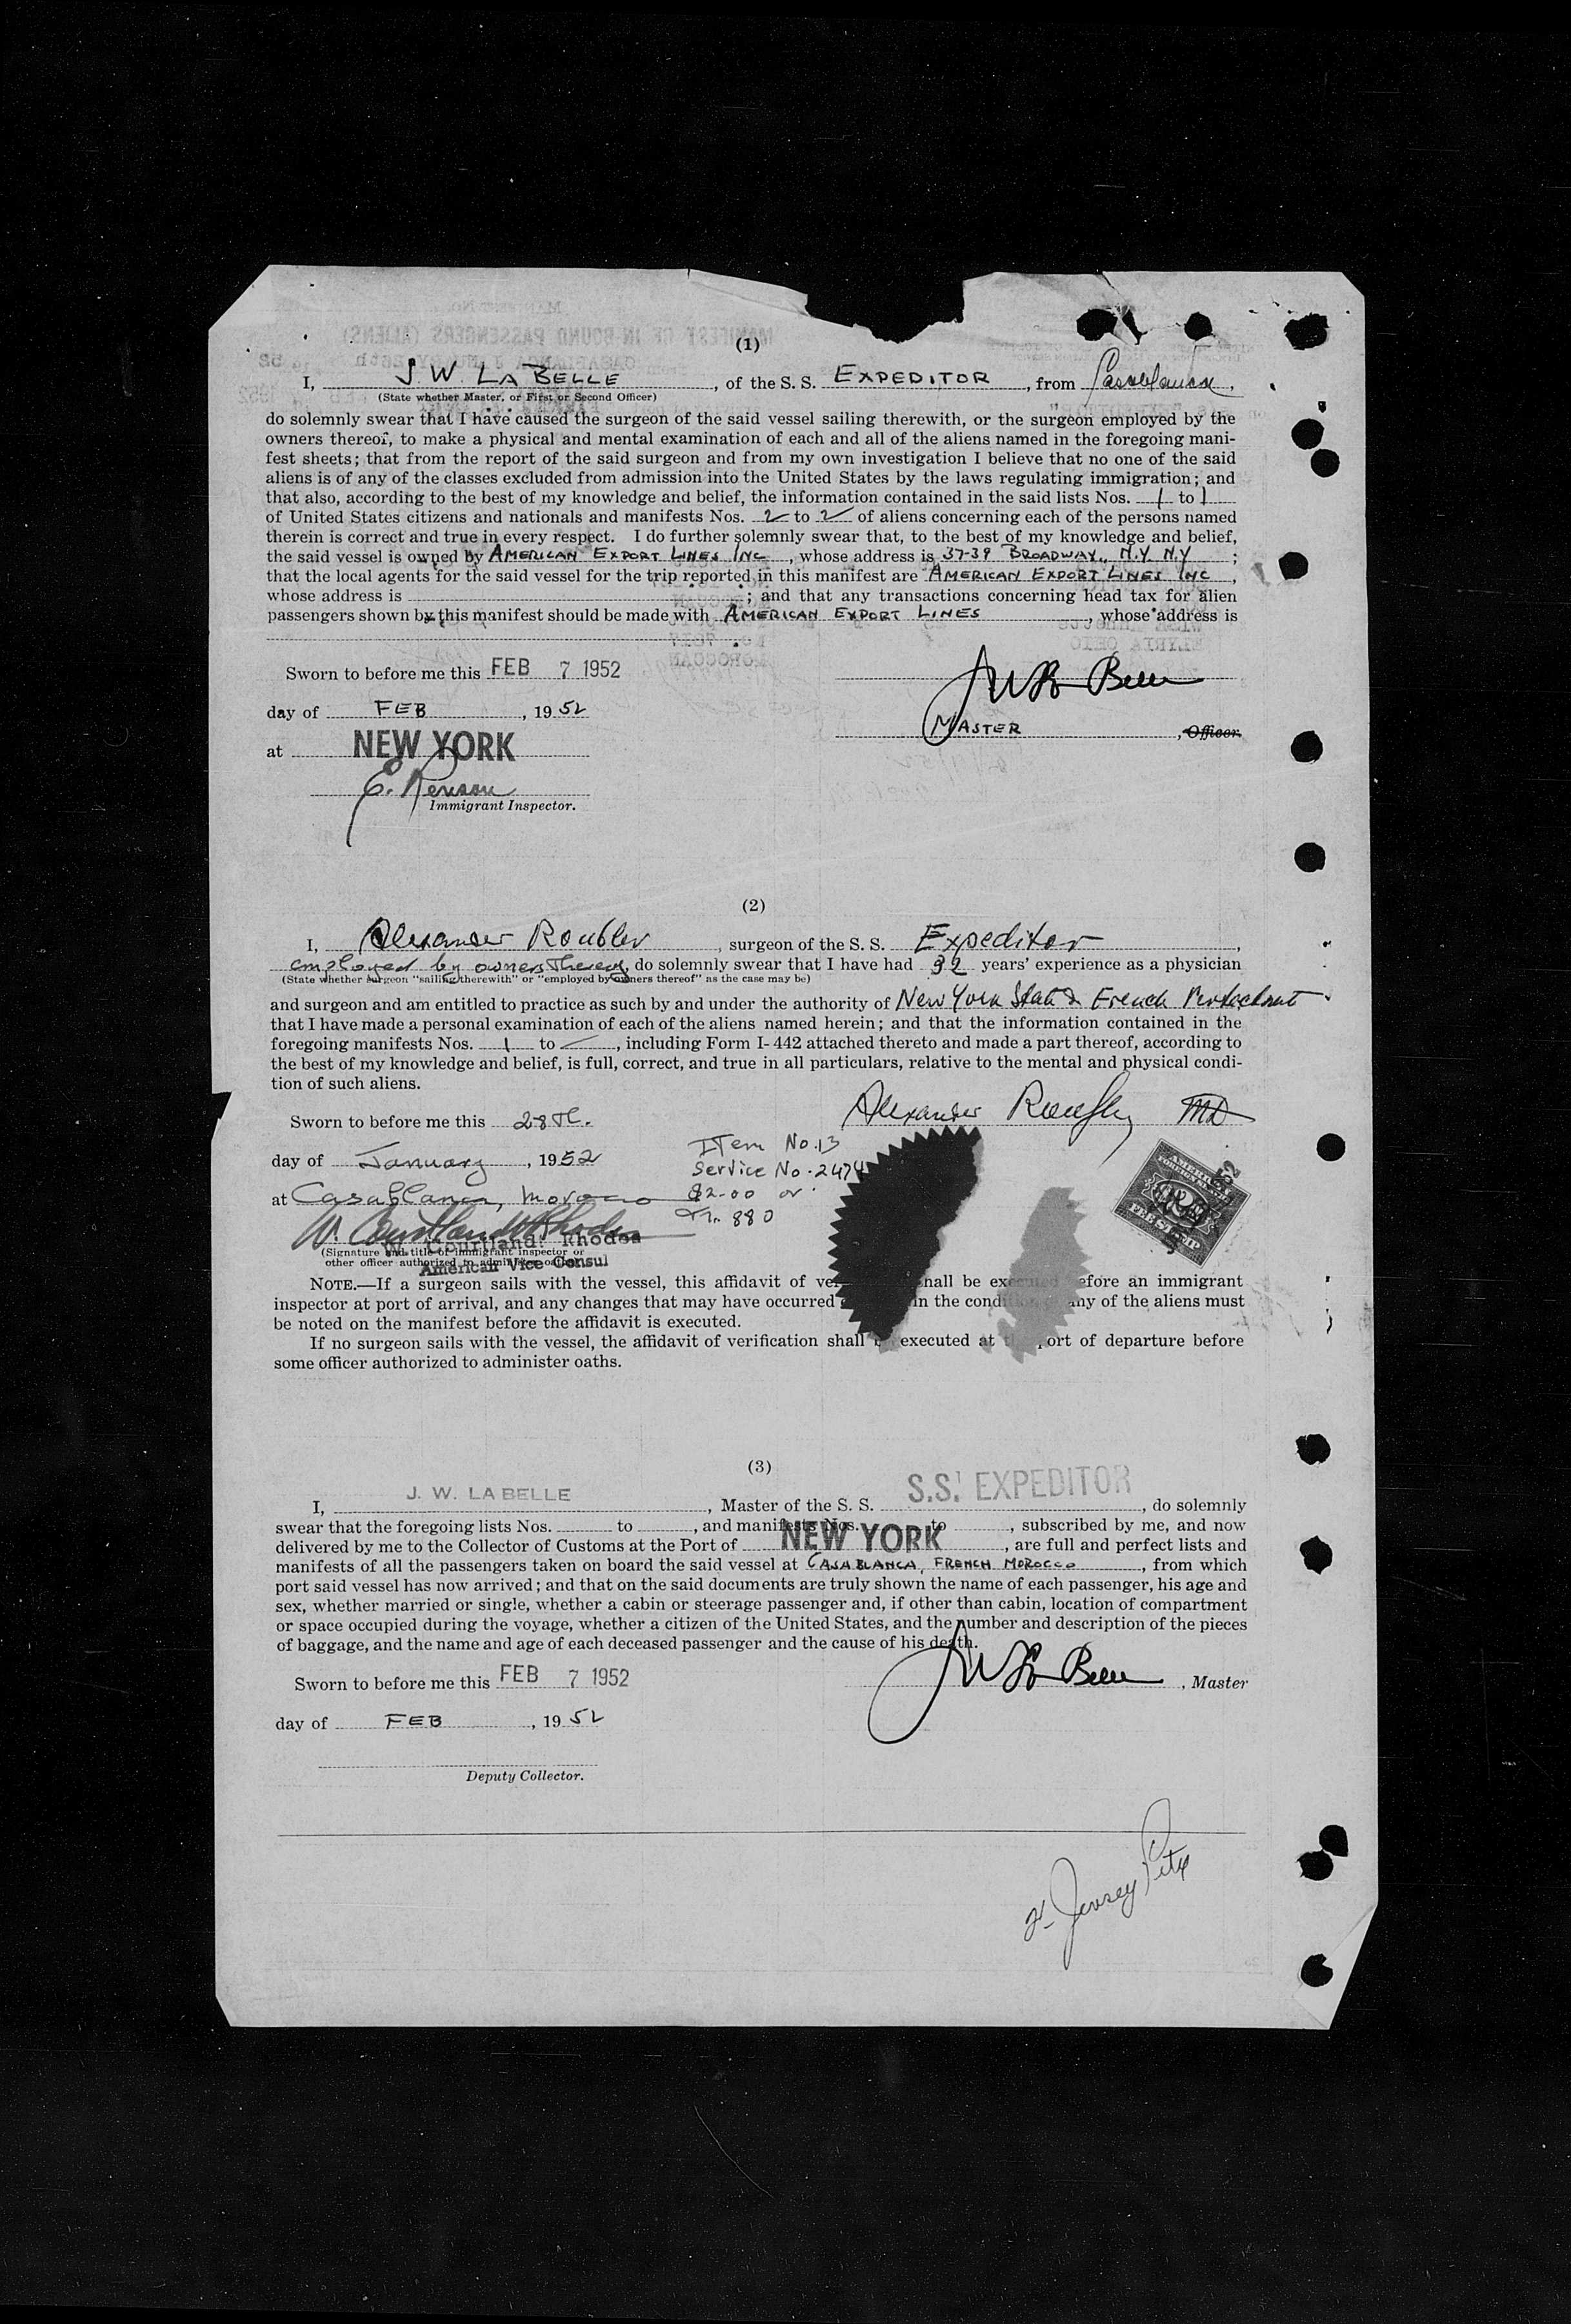 (1)
I, J W LA BELLE, of the S. S. EXPEDITOR, from Casablanca,
(State whether Master, or First or Second Officer)
do solemnly swear that I have caused the surgeon of the said vessel sailing therewith, or the surgeon employed by the
owners thereof, to make a physical and mental examination of each and all of the aliens named in the foregoing mani-
fest sheets; that from the report of the said surgeon and from my own investigation I believe that no one of the said
aliens is of any of the classes excluded from admission into the United States by the laws regulating immigration; and
that also, according to the best of my knowledge and belief, the information contained in the said lists Nos. 1 to 1
of United States citizens and nationals and manifests Nos. 2 to 2 of aliens concerning each of the persons named
therein is correct and true in every respect. I do further solemnly swear that, to the best of my knowledge and belief,
the said vessel is owned by AMERICAN EXPORT LINES INC, whose address is 37-39 BROADWAY, N.Y N.Y ;
that the local agents for the said vessel for the trip reported in this manifest are AMERICAN EXPORT LINES INC,
whose address is ; and that any transactions concerning head tax for alien
passengers shown by this manifest should be made with AMERICAN EXPORT LINES, whose address is
Sworn to before me this FEB 7 1952
JW La Belle
day of FEB, 1952
MASTER, Officer.
at NEW YORK
E. Renson
Immigrant Inspector.
(2)
I, Alexander Roubler, surgeon of the S. S. Expeditor,
employed by owners thereof, do solemnly swear that I have had 32 years' experience as a physician
(State whether surgeon "sailing therewith" or "employed by owners thereof" as the case may be)
and surgeon and am entitled to practice as such by and under the authority of New York State & French Protectorat
that I have made a personal examination of each of the aliens named herein; and that the information contained in the
foregoing manifests Nos. 1 to —, including Form I-442 attached thereto and made a part thereof, according to
the best of my knowledge and belief, is full, correct, and true in all particulars, relative to the mental and physical condi-
tion of such aliens.
Alexander MD
Sworn to before me this 28th.
day of January, 1952
at Casablanca, Morocco
Item No. 13
Service No. 2474
$2.00 or
Fr. 880
W. Courtland Rhodes
W. Courtland Rhodes
(Signature and title of immigrant inspector or
other officer authorized to administer oaths)
American Vice Consul
AMERICAN
FOREIGN SERVICE
FEE STAMP
NOTE.—If a surgeon sails with the vessel, this affidavit of shall be executed before an immigrant
inspector at port of arrival, and any changes that may have occurred in the condition of any of the aliens must
be noted on the manifest before the affidavit is executed.
If no surgeon sails with the vessel, the affidavit of verification shall be executed at the port of departure before
some officer authorized to administer oaths.
(3)
I, J. W. LA BELLE, Master of the S. S. S.S. EXPEDITOR, do solemnly
swear that the foregoing lists Nos. to , and manifests Nos. to , subscribed by me, and now
delivered by me to the Collector of Customs at the Port of NEW YORK, are full and perfect lists and
manifests of all the passengers taken on board the said vessel at CASABLANCA, FRENCH MOROCCO, from which
port said vessel has now arrived; and that on the said documents are truly shown the name of each passenger, his age and
sex, whether married or single, whether a cabin or steerage passenger and, if other than cabin, location of compartment
or space occupied during the voyage, whether a citizen of the United States, and the number and description of the pieces
of baggage, and the name and age of each deceased passenger and the cause of his death.
Sworn to before me this FEB 7 1952
JW La Belle, Master
day of FEB, 1952
Deputy Collector.
Jersey City